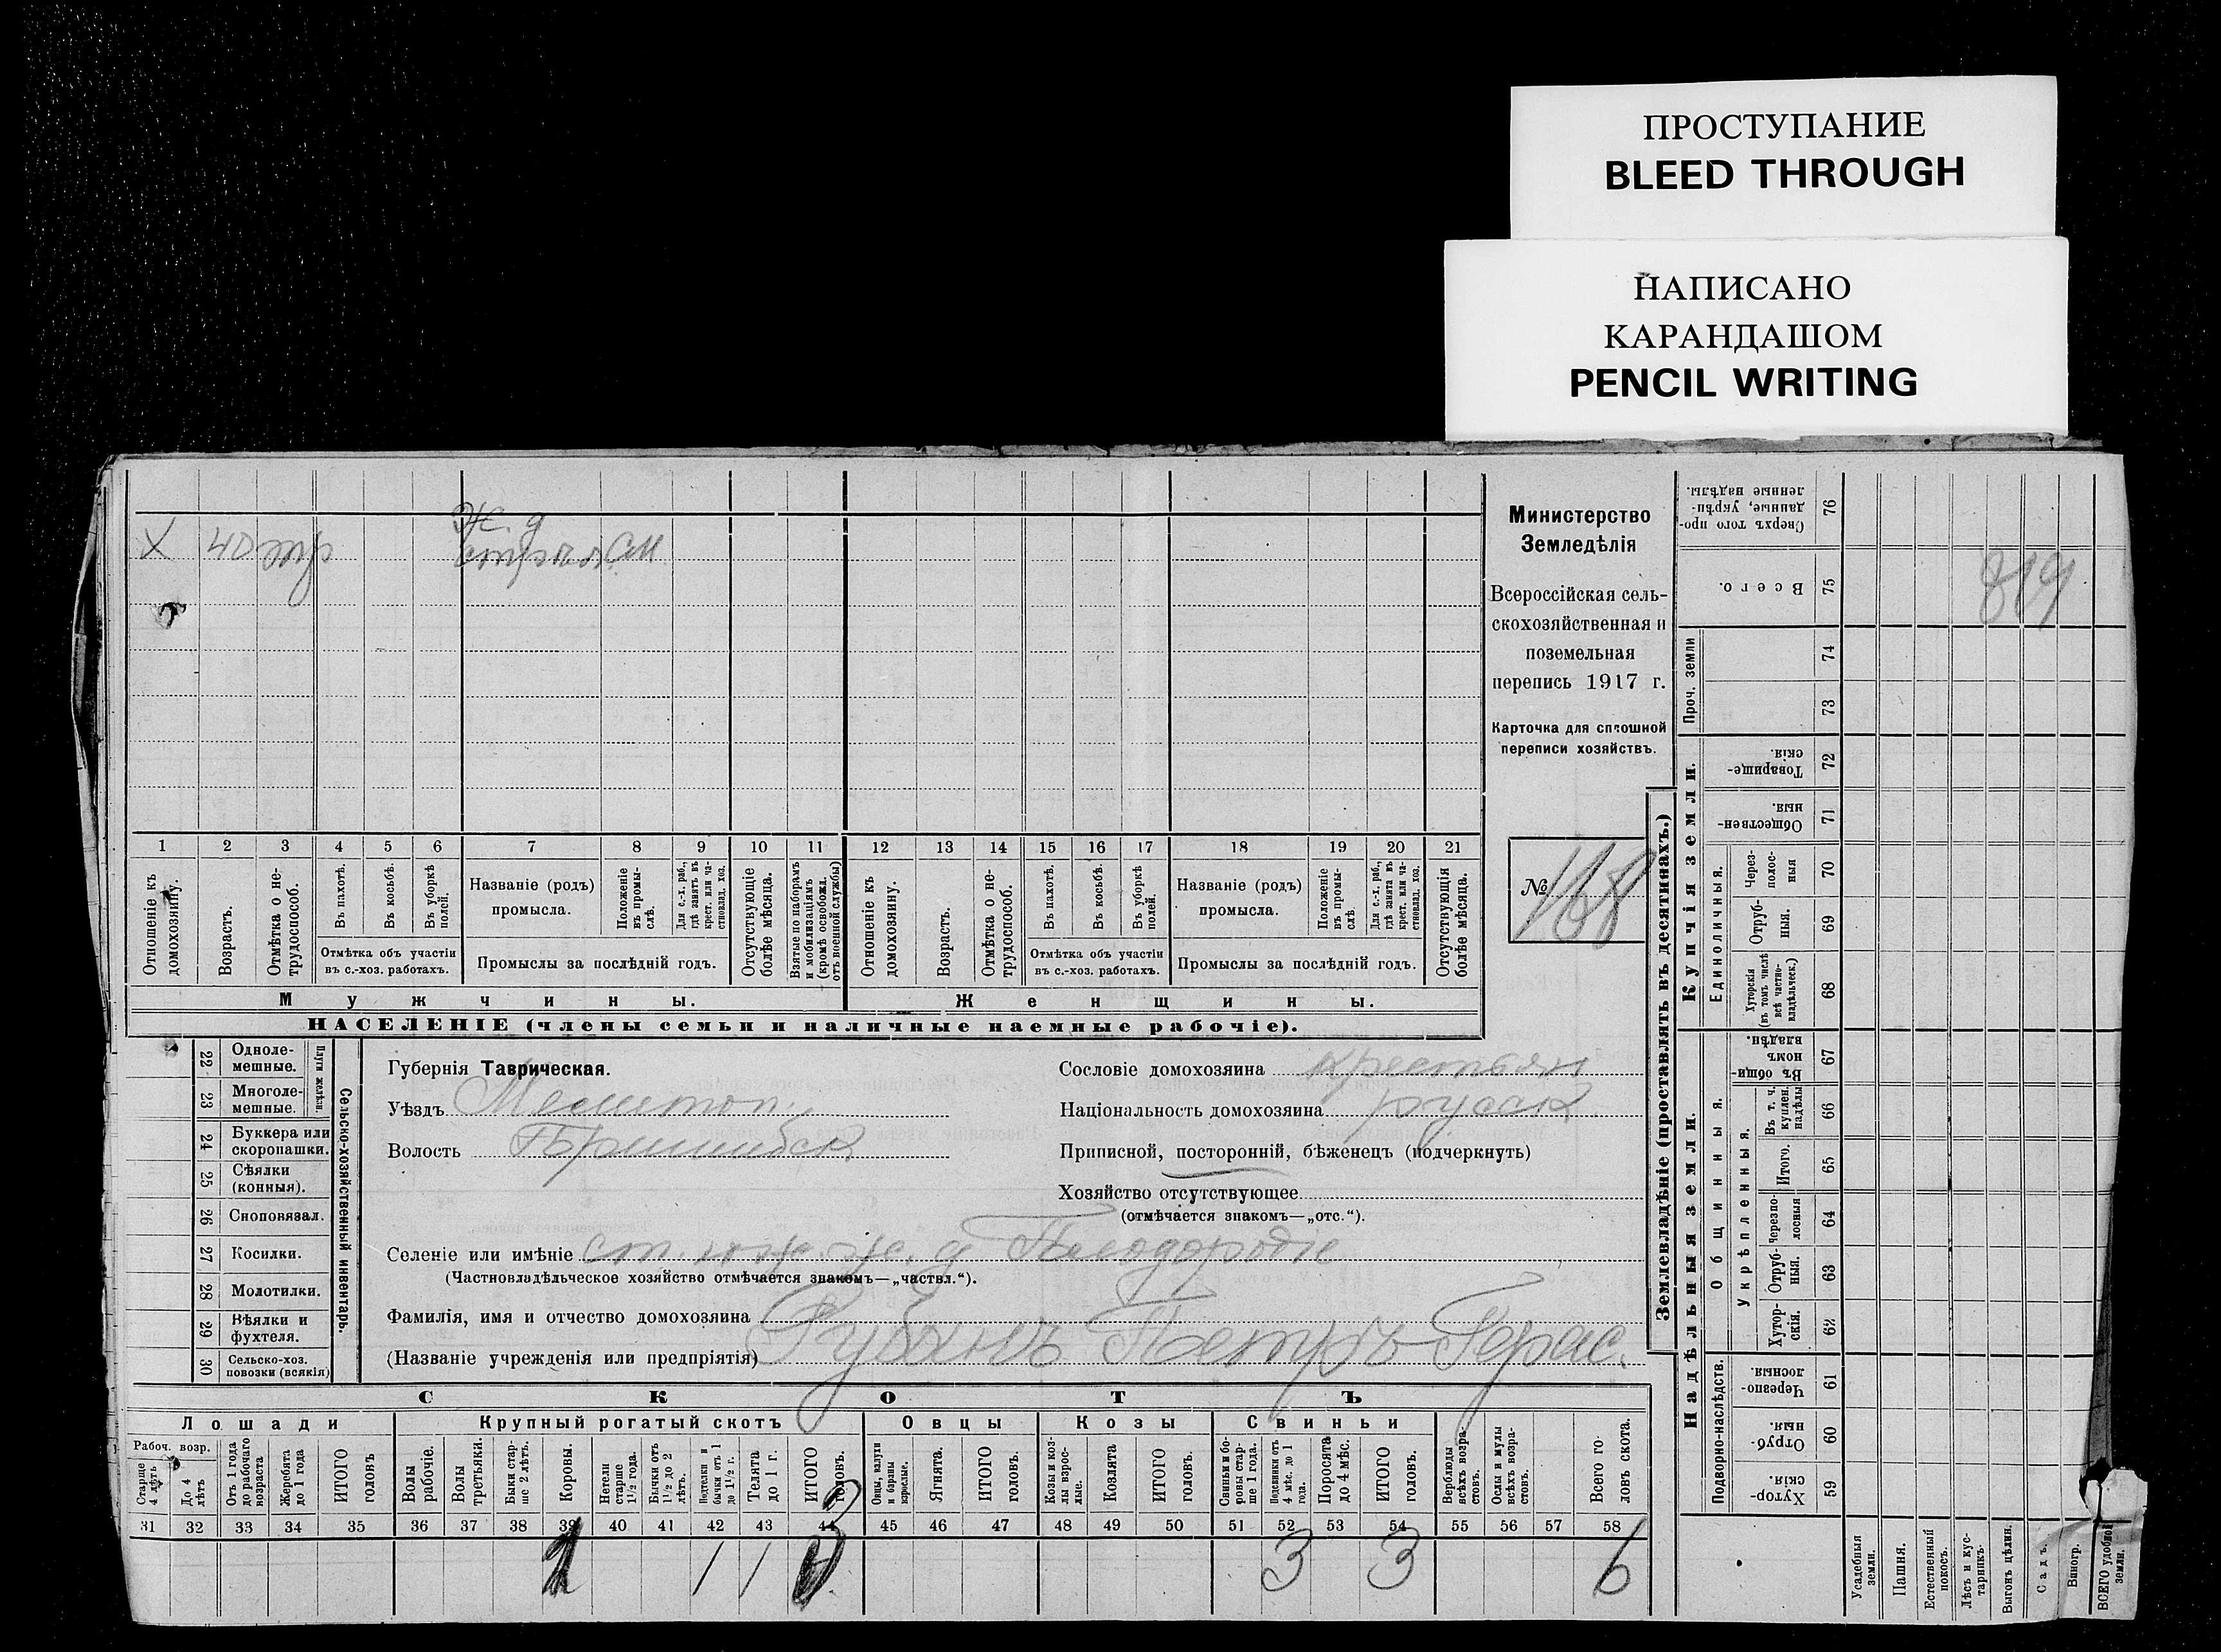 ПРОСТУПАНИЕ
BLEED THROUGH
НАПИСАНО
КАРАНДАШОМ
PENCIL WRITING
Х 40 Ж. д.
1 2 3 4 5 6 7 8 9 10 11 12 13 14 15 16 17 18 19 20 21
Отношеніе къ домохозяину.
Возрастъ.
Отмѣтка о нетрудоспособ.
Въ пахотѣ.
Въ косьбѣ.
Въ уборкѣ полей.
Отмѣтка объ участіи
въ с.-хоз. работахъ.
Названіе (родъ)
промысла.
Положеніе въ промыслѣ.
Для с.-х. раб., гдѣ занятъ въ крест. или частновлад. хоз.
Промыслы за послѣдній годъ.
Отсутствующіе болѣе мѣсяца.
Взятые по наборамъ и мобилизаціямъ (кромѣ освобожд. отъ военной службы)
Отношеніе къ домохозяину.
Возрастъ.
Отмѣтка о нетрудоспособ.
Въ пахотѣ.
Въ косьбѣ.
Въ уборкѣ полей.
Отмѣтка объ участіи
въ с.-хоз. работахъ.
Названіе (родъ)
промысла.
Положеніе въ промыслѣ.
Для с.-х. раб., гдѣ занята въ крест. или частновлад. хоз.
Промыслы за послѣдній годъ.
Отсутствующія болѣе мѣсяца.
Мужчины.
Женщины.
НАСЕЛЕНІЕ (члены семьи и наличные наемные рабочіе).
Министерство
Земледѣлія
Всероссійская сель-
скохозяйственная и
поземельная
перепись 1917 г.
Карточка для сплошной
переписи хозяйствъ.
№ 168
22 Одноле-
мешные.
23 Многоле-
мешные.
Плуги желѣзн.
24 Буккера или
скоропашки.
25 Сѣялки
(конныя).
26 Сноповязал.
27 Косилки.
28 Молотилки.
29 Вѣялки и
фухтеля.
30 Сельско-хоз.
повозки (всякія)
Сельско-хозяйственный инвентарь.
Губернія Таврическая.
Уѣздъ Мелитоп.
Волость Пришибск.
Сословіе домохозяина крестьян
Національность домохозяина русск.
Приписной, посторонній, бѣженецъ (подчеркнуть)
Хозяйство отсутствующее
(отмѣчается знакомъ—„отс.“).
Селеніе или имѣніе ст. юж. ж. д. Плодородіе
(Частновладѣльческое хозяйство отмѣчается знакомъ—„частвл.“).
Фамилія, имя и отчество домохозяина
(Названіе учрежденія или предпріятія) Рубанъ Петръ Герас.
СКОТЪ
Лошади
Крупный рогатый скотъ
Овцы
Козы
Свиньи
Рабоч. возр.
Старше 4 лѣтъ
До 4 лѣтъ
Отъ 1 года до рабочаго возраста
Жеребята до 1 года
ИТОГО головъ
Волы рабочіе.
Волы третьяки.
Быки старше 2 лѣтъ.
Коровы.
Нетели старше 1½ года.
Бычки отъ 1½ до 2 лѣтъ.
Подтелки и бычки отъ 1 до 1½ г.
Телята до 1 г.
ИТОГО головъ.
Овцы, валухи и бараны взрослые.
Ягнята.
ИТОГО головъ.
Козы и козлы взрослые.
Козлята
ИТОГО головъ.
Свиньи и боровы старше 1 года.
Подсвинки отъ 4 мѣс. до 1 года.
Поросята до 4 мѣс.
ИТОГО головъ.
Верблюды всѣхъ возрастовъ.
Ослы и мулы всѣхъ возрастовъ.
Всего головъ скота.
31 32 33 34 35 36 37 38 39 40 41 42 43 44 45 46 47 48 49 50 51 52 53 54 55 56 57 58
1 1 1 3 3 3 6
Землевладѣніе (проставлять въ десятинахъ.)
Купчія земли.
Надѣльныя земли.
Сверхъ того проданные, укрѣпленные надѣлы. 76
Всего. 75
819
Проч. земли
74
73
Товарищескія 72
Общественныя. 71
Единоличныя.
Черезполосныя 70
Отрубныя. 69
Хуторскія (въ томъ числѣ всѣ частновладѣльческ.) 68
Общинныя.
Въ общинномъ владѣн. 67
Укрѣпленныя.
Въ т. ч. куплен. надѣлы 66
Итого. 65
Черезполосныя 64
Отрубныя. 63
Хуторскія. 62
Подворно-наслѣдств.
Черезполосныя 61
Отрубныя. 60
Хуторскія. 59
Усадебныя земли.
Пашня.
Естественный покосъ.
Лѣсъ и кустарникъ.
Выгонъ цѣлин.
Садъ.
Виногр.
ВСЕГО удобной земли.